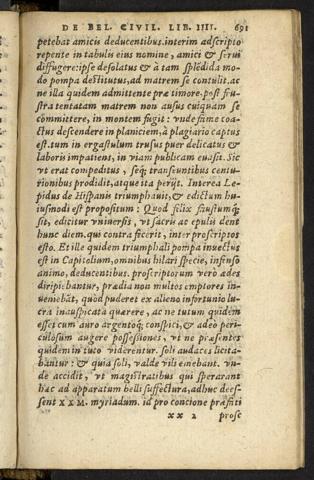 DE BEL. CIVIL. LIB. IIII. 691
petebat amicis deducentibus. interim adscripto
repente in tabulis eius nomine, amici & serui
diffugere: ipse desolatus & à tam splẽdida mo-
do pompa destitutus, ad matrem se contulit. ac
ne illa quidem admittente præ timore. post fru-
stra tentatam matrem non ausus cuiquam se
committere, in montem fugit: vnde fame coa-
ctus descendere in planiciem, à plagiario captus
est. tum in ergastulum trusus puer delicatus &
laboris impatiens, in viam publicam euasit. Sic
vt erat compeditus, seq; transeuntibus centu-
rionibus prodidit, atque ita perijt. Interea Le-
pidus de Hispanis triumphauit, & edictum hu-
iusmodi est propositum: Quod fœlix faustumq́;
sit, edicitur vniuersis, vt sacris ac epulis dent
hunc diem, qui contra fecerit, inter proscriptos
esto. Et ille quidem triumphali pompa inuectus
est in Capitolium, omnibus hilari specie, infenso
animo, deducentibus. proscriptorum verò ædes
diripiebantur, prædia non multos emptores in-
ueniebãt, quòd puderet ex alieno infortunio lu-
cra inauspicata quærere, ac ne tutum quidem
esset cum auro argentoq́; conspici, & adeo peri-
culosum augere possessiones, vt ne præsentes
quidem in tuto viderentur. soli audaces licita-
bantur: & quia soli, valde vili emebant. vn-
de accidit, vt magistratibus qui sperarant
hæc ad apparatum belli suffectura, adhuc dees-
sent XXM. myriadum. id pro concione præfati
xx 2 prosc